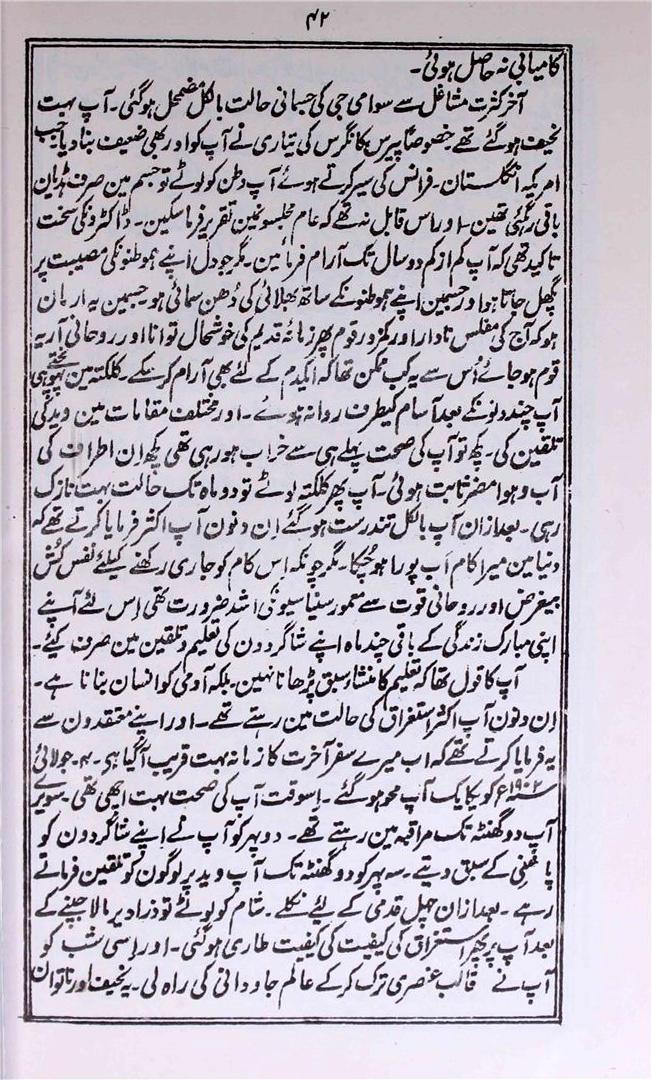 ۴۲
کامیابی نہ حاصل ہوئی۔
آخر کثرت مشاغل سے سوامی جی کی جسمانی حالت بالکل مضمحل ہوگئی۔ آپ بہت
نحیف ہوگئے تھے۔ خصوصاً پیرس کانگرس کی تیاری نے آپ کو اور بھی ضعیف بنا دیا۔ جب
امریکہ انگلستان۔ فرانس کی سیر کرتے ہوئے آپ وطن کو لوٹے تو جسم مین صرف ہڈیان
باقی رہگئی تھین۔ اور اس قابل نہ تھے کہ عام مجلسونمین تقریر فرماسکین۔ ڈاکٹرونکی سخت
تاکید تھی کہ آپ کم از کم دو سال تک آرام فرمائین۔ مگر جو دل اپنے ہموطنونکی مصیبت پر
پگھل جاتا ہو اور جسمین اپنے ہموطنونکے ساتھ بھلائی کی دُھن سمائی ہو۔ جسمین یہ ارمان
ہو کہ آج کی مفلس نادار اور کمزور قوم پھر زمانۂ قدیم کی خوشحال توانا اور روحانی آریہ
قوم ہوجائے اُس سے یہ کب ممکن تھا کہ ایکدم کے لئے بھی آرام کرسکے۔ کلکتہ مین پہونچتے ہی
آپ چند دنونکے بعد آسام کیطرف روانہ ہوئے۔ اور مختلف مقامات مین وید کی
تلقین کی۔ کچھ تو آپ کی صحت پہلے ہی سے خراب ہورہی تھی کچھ اِن اطراف کی
آب و ہوا مضر ثابت ہوئی۔ آپ پھر کلکتہ لوٹے تو دو ماہ تک حالت بہت نازک
رہی۔ بعد ازان آپ بالکل تندرست ہوگئے اِن دنون آپ اکثر فرمایا کرتے تھے کہ
دنیا مین میرا کام اَب پورا ہوچُکا۔ مگر چونکہ اِس کام کو جاری رکھنے کیلئے نفس کُش
بیغرض اور روحانی قوت سے معمور سنیاسیونکی اشد ضرورت تھی اِس لئے آپنے
اپنی مبارک زندگی کے باقی چند ماہ اپنے شاگردون کی تعلیم و تلقین مین صرف کیئے۔
آپ کا قول تھا کہ تعلیم کا منشاء سبق پڑھانا نہین۔ بلکہ آدمی کو انسان بنانا ہے۔
اِن دنون آپ اکثر استغراق کی حالت مین رہتے تھے۔ اور اپنے معتقدون سے
یہ فرمایا کرتے تھے کہ اب میرے سفر آخرت کا زمانہ بہت قریب آگیا ہی۔ ۴۔ جولائی
سنہ ۱۹۰۲ء کو یکایک آپ محو ہوگئے۔ اِسوقت آپ کی صحت بہت اچھی تھی۔ سویرے
آپ دو گھنٹہ تک مراقبہ مین رہتے تھے۔ دوپہر کو آپ نے اپنے شاگردون کو
پانِنی کے سبق دیتے۔ سہ پہر کو دو گھنٹہ تک آپ وید پر لوگون کو تلقین فرماتے
رہے۔ بعد ازان چہل قدمی کے لیئے نکلے۔ شام کو لوٹے تو ذرا دیر مالا جپنے کے
بعد آپ پر پھر استغراق کی کیفیت کی کیفیت طاری ہوگئی۔ اور اِسی شب کو
آپ نے قالب عنصری ترک کرکے عالم جاودانی کی راہ لی۔ یہ نحیف اور ناتوان